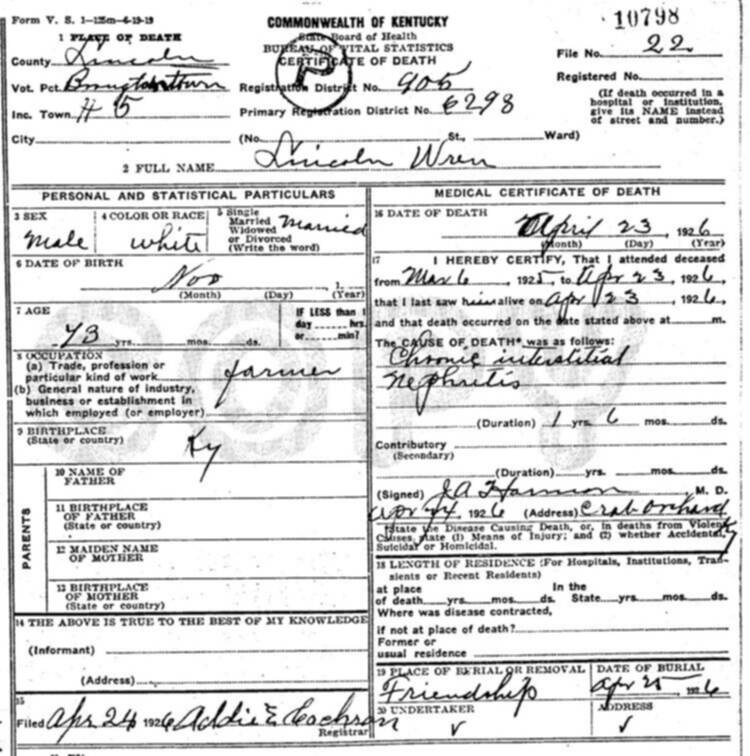 Form V. S. 1-125m-6-19-19
COMMONWEALTH OF KENTUCKY
State Board of Health
BUREAU OF VITAL STATISTICS
CERTIFICATE OF DEATH
10798
File No. 22
Registered No.
(If death occurred in a hospital or institution, give its NAME instead of street and number.)
1 PLACE OF DEATH
County Lincoln
Vot. Pct.
Inc. Town H 5
City
Registration District No. 905
Primary Registration District No. 6298
(No. St., Ward)
2 FULL NAME Lincoln Wren
PERSONAL AND STATISTICAL PARTICULARS
3 SEX
Male
4 COLOR OR RACE
white
5 Single
Married
Widowed
or Divorced
(Write the word)
Married
6 DATE OF BIRTH
Nov 1
(Month) (Day) (Year)
7 AGE
73 yrs. mos. ds.
IF LESS than 1
day hrs.
or min?
8 OCCUPATION
(a) Trade, profession or
particular kind of work farmer
(b) General nature of industry,
business or establishment in
which employed (or employer)
9 BIRTHPLACE
(State or country) Ky
PARENTS
10 NAME OF
FATHER
11 BIRTHPLACE
OF FATHER
(State or country)
12 MAIDEN NAME
OF MOTHER
13 BIRTHPLACE
OF MOTHER
(State or country)
14 THE ABOVE IS TRUE TO THE BEST OF MY KNOWLEDGE
(Informant)
(Address)
15
Filed Apr 24 1926 Addie E Cochran
Registrar
MEDICAL CERTIFICATE OF DEATH
16 DATE OF DEATH
April 23, 1926
(Month) (Day) (Year)
17 I HEREBY CERTIFY, That I attended deceased
from Mar 6, 1925, to Apr 23, 1926,
that I last saw him alive on Apr 23, 1926,
and that death occurred on the date stated above at m.
The CAUSE OF DEATH* was as follows:
Chronic interstitial
Nephritis
(Duration) 1 yrs. 6 mos. ds.
Contributory
(Secondary)
(Duration) yrs. mos. ds.
(Signed) J A Harmon M. D.
Apr 24, 1926 (Address) Crab Orchard Ky
*State the Disease Causing Death, or, in deaths from Violent
Causes, state (1) Means of Injury; and (2) whether Accidental,
Suicidal or Homicidal.
18 LENGTH OF RESIDENCE (For Hospitals, Institutions, Transients or Recent Residents)
at place In the
of death yrs. mos. ds. State yrs. mos. ds.
Where was disease contracted,
if not at place of death?
Former or
usual residence
19 PLACE OF BURIAL OR REMOVAL
Friendship
DATE OF BURIAL
Apr 25, 1926
20 UNDERTAKER
ADDRESS
COPY